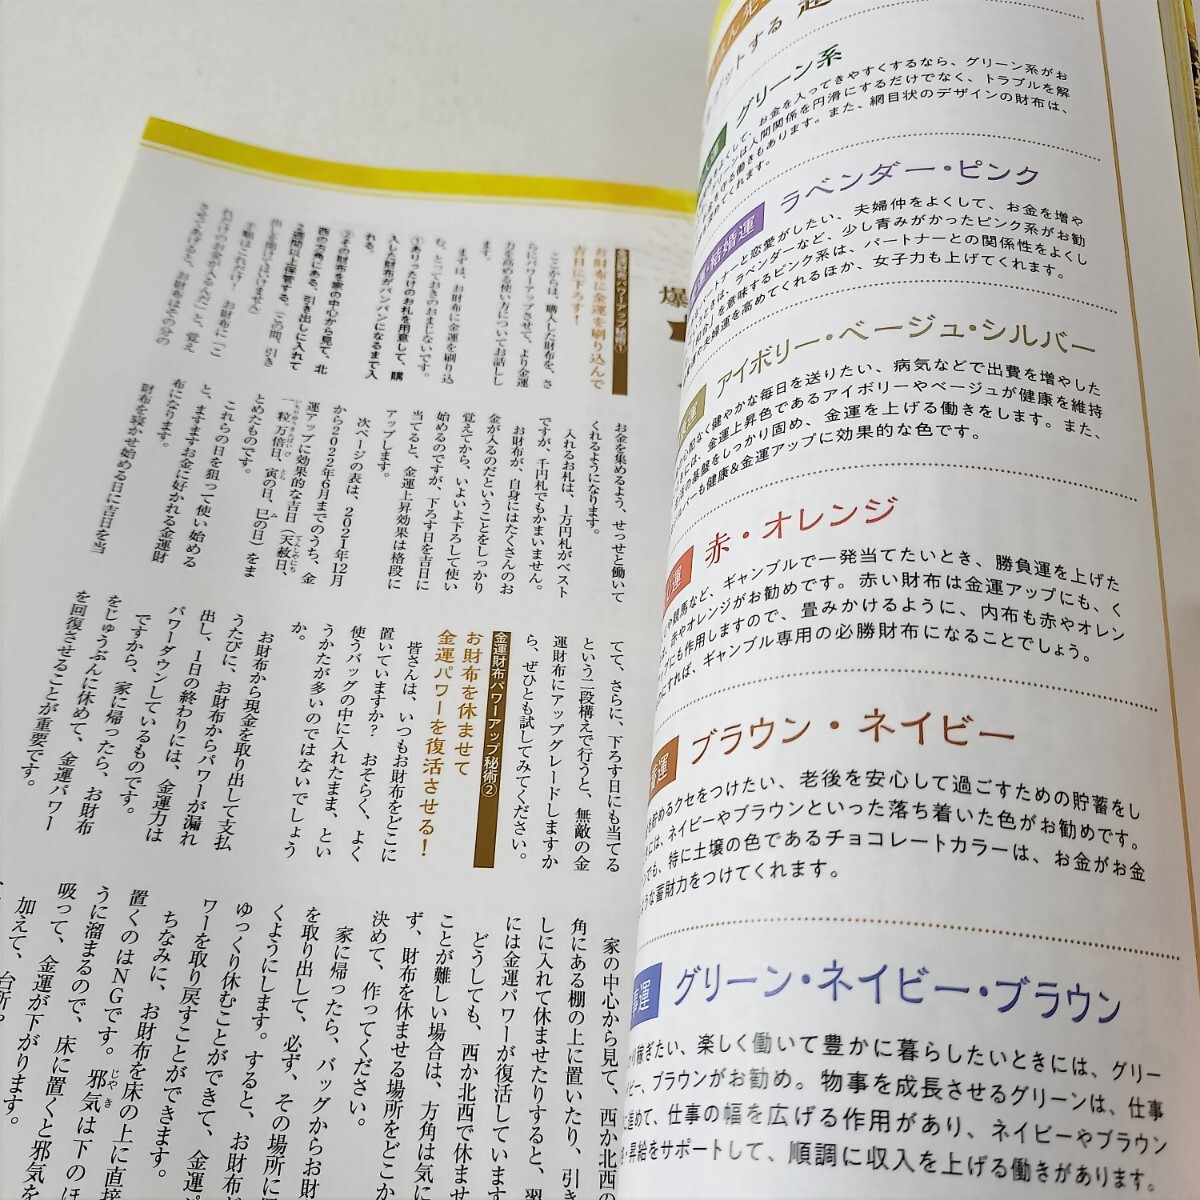 金運財布パワーアップ秘術①
お財布に金運を刷り込んで
吉日に下ろす！
ここからは、購入した財布を、さ
らにパワーアップさせて、より金運
力を高める使い方についてお話しし
ます。
まずは、お財布に金運を刷り込
む、とっておきのおまじないです。
①ありったけのお札を用意して、購
入した財布がパンパンになるまで入
れる。
②その財布を家の中心から見て、北
西の方角にある、引き出しに入れて
2週間以上保管する。（この間、引き
出しを開けてはいけません）
手順はこれだけ！　お財布に「こ
れだけのお金が入るんだ」と、覚え
させてあげると、お財布はその分の
お金を集めるよう、せっせと働いて
くれるようになります。
入れるお札は、1万円札がベスト
ですが、千円札でもかまいません。
お財布が、自身にはたくさんのお
金が入るのだということをしっかり
覚えてから、いよいよ下ろして使い
始めるのですが、下ろす日を吉日に
当てると、金運上昇効果は格段に
アップします。
次ページの表は、2021年12月
から2022年6月までのうち、金
運アップに効果的な吉日（天赦日、
一粒万倍日、寅の日、巳の日）をま
とめたものです。
これらの日を狙って使い始める
と、ますますお金に好かれる金運財
布になります。
財布を寝かせ始める日に吉日を当
てて、さらに、下ろす日にも当てる
という二段構えで行うと、無敵の金
運財布にアップグレードしますか
ら、ぜひとも試してみてください。
金運財布パワーアップ秘術②
お財布を休ませて
金運パワーを復活させる！
皆さんは、いつもお財布をどこに
置いていますか？　おそらく、よく
使うバッグの中に入れたまま、とい
うかたが多いのではないでしょう
か。
お財布から現金を取り出して支払
うたびに、お財布からパワーが漏れ
出し、1日の終わりには、金運力は
パワーダウンしているものです。
ですから、家に帰ったら、お財布
をじゅうぶんに休めて、金運パワー
を回復させることが重要です。
家の中心から見て、西か北西の
角にある棚の上に置いたり、引き
しに入れて休ませたりすると、翌
には金運パワーが復活しています
どうしても、西か北西で休ませ
ことが難しい場合は、方角は気に
ず、財布を休ませる場所をどこか
決めて、作ってください。
家に帰ったら、バッグからお財
を取り出して、必ず、その場所に
くようにします。すると、お財布が
ゆっくり休むことができて、金運パ
ワーを取り戻すことができます。
ちなみに、お財布を床の上に直接
置くのはNGです。邪気は下のほ
うに溜まるので、床に置くと邪気を
吸って、金運が下がります。
加えて、台所
グリーン系
お金を入ってきやすくするなら、グリーン系がお
ーンは人間関係を円滑にするだけでなく、トラブルを解
る働きもあります。また、網目状のデザインの財布は、
めてくれます。
結婚運
ラベンダー・ピンク
トナーと恋愛がしたい、夫婦仲をよくして、お金を増や
きは、ラベンダーなど、少し青みがかったピンク系がお勧
和合」を意味するピンク系は、パートナーとの関係性をよくし
や夫婦運を高めてくれるほか、女子力も上げてくれます。
運
アイボリー・ベージュ・シルバー
配なく健やかな毎日を送りたい、病気などで出費を増やした
には、金運上昇色であるアイボリーやベージュが健康を維持
の基盤をしっかり固め、金運を上げる働きをします。また、
バーも健康&金運アップに効果的な色です。
運
赤・オレンジ
や競馬など、ギャンブルで一発当てたいとき、勝負運を上げた
赤やオレンジがお勧めです。赤い財布は金運アップにも、く
にも作用しますので、畳みかけるように、内布も赤やオレン
にすれば、ギャンブル専用の必勝財布になることでしょう。
蓄運
ブラウン・ネイビー
を貯めるクセをつけたい、老後を安心して過ごすための貯蓄をし
には、ネイビーやブラウンといった落ち着いた色がお勧めです。
でも、特に土壌の色であるチョコレートカラーは、お金がお金
ような蓄財力をつけてくれます。
事運
グリーン・ネイビー・ブラウン
り稼ぎたい、楽しく働いて豊かに暮らしたいときには、グリー
イビー、ブラウンがお勧め。物事を成長させるグリーンは、仕事
に進めて、仕事の幅を広げる作用があり、ネイビーやブラウン
・昇給をサポートして、順調に収入を上げる働きがあります。